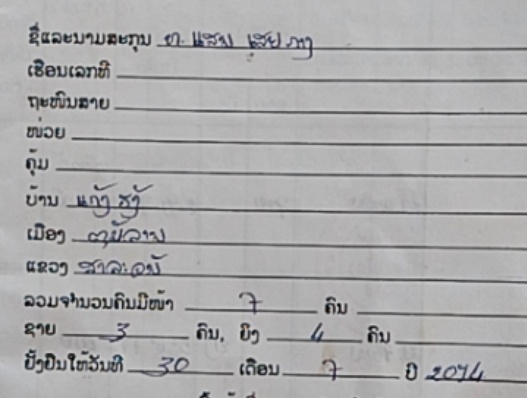 ຊື່ແລະນາມສະກຸນ ທ. ແສນ ເສຍ ກາງ
ເຮືອນເລກທີ
ຖະໜົນສາຍ
ໜ່ວຍ
ຄຸ້ມ
ບ້ານ ແກ້ງ ຊັງ
ເມືອງ ຕຸ້ມລານ
ແຂວງ ສາລະວັນ
ລວມຈຳນວນຄົນມີໜ້າ 7 ຄົນ
ຊາຍ 3 ຄົນ, ຍິງ 4 ຄົນ
ຢັ້ງຢືນໃຫ້ວັນທີ 30 ເດືອນ 7 ປີ 2014